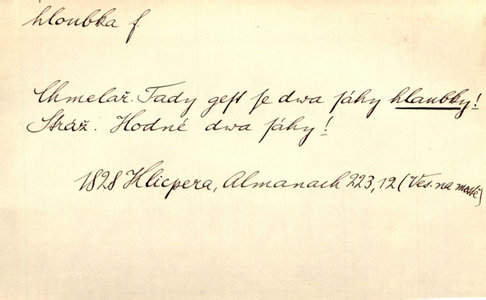 hloubka f.
Chmelař. Tady gest se dwa sáhy hlaubky!
Stráž. Hodné dwa sáhy!
1828 Klicpera, Almanach 223,12 (Ves. na mostě)